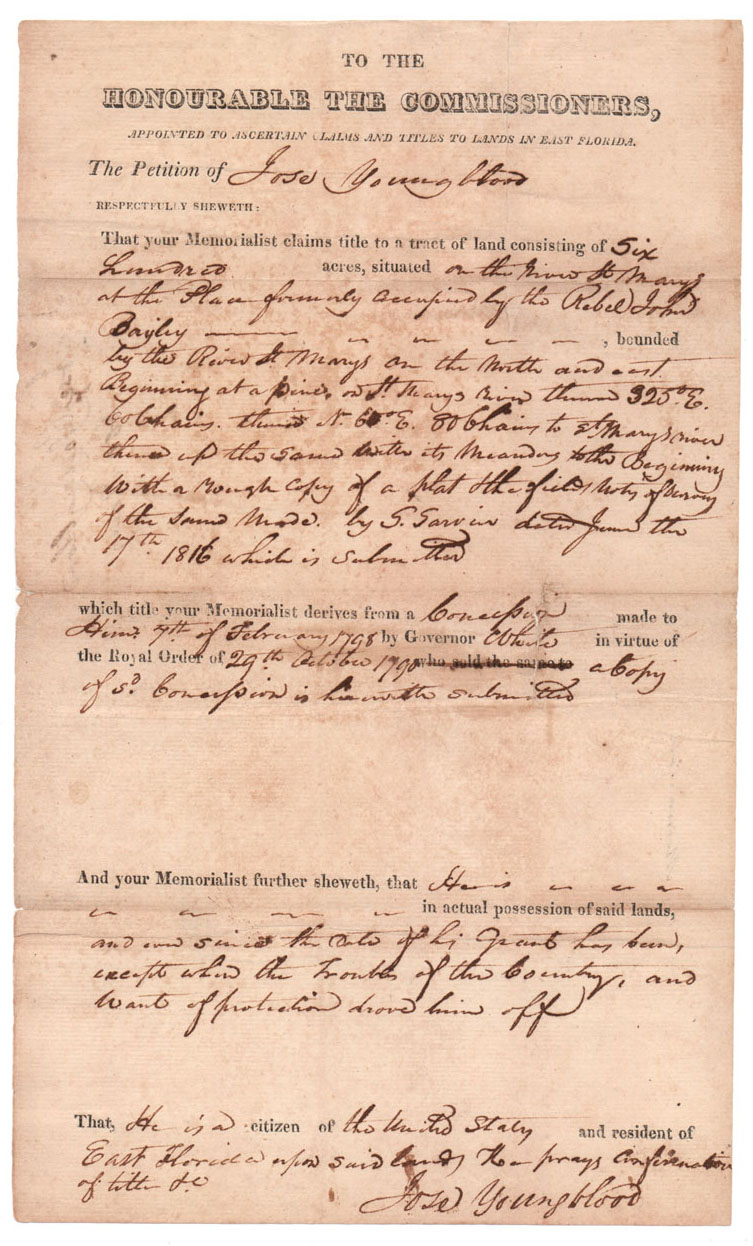 TO THE
HONOURABLE THE COMMISSIONERS,
APPOINTED TO ASCERTAIN CLAIMS AND TITLES TO LANDS IN EAST FLORIDA.
The Petition of Jose Youngblood
RESPECTFULLY SHEWETH:
That your Memorialist claims title to a tract of land consisting of Six
Hundred acres, situated on the River St Marys
at the Place formerly occupied by the Rebel John
Bayley — — — — — , bounded
by the River St Marys on the North and east
Beginning at a pine on St Marys river thence S25°E.
60 Chains. thence N. 60°E. 80 Chains to St Marys river
thence up the same with its Meanders to the Beginning
With a rough Copy of a plat & the field Nots of Survey
of the same Made by G. Garvin dated June the
17th 1816 which is submitted
which title your Memorialist derives from a Concession made to
Him 7th of February 1798 by Governor White in virtue of
the Royal Order of 29th October 1790 who sold the same to a Copy
of sd Concession is herewith submitted
And your Memorialist further sheweth, that He is — — —
— — — — in actual possession of said lands,
and ever since the date of his Grant has been,
except when the Troubles of the Country, and
Want of protection drove him off
That, He is a citizen of the United States and resident of
East Florida upon said lands He prays Confirmation
of title &c
Jose Youngblood